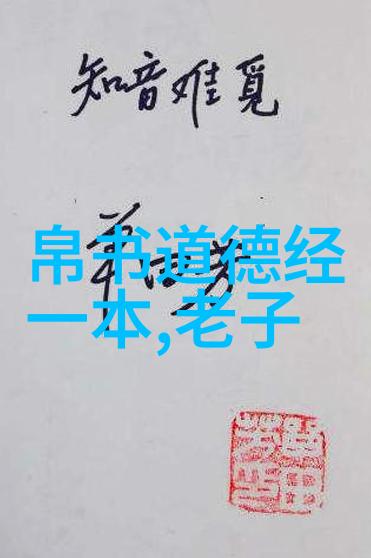 知音难觅
单田芳
帛书道德经
一本,老子